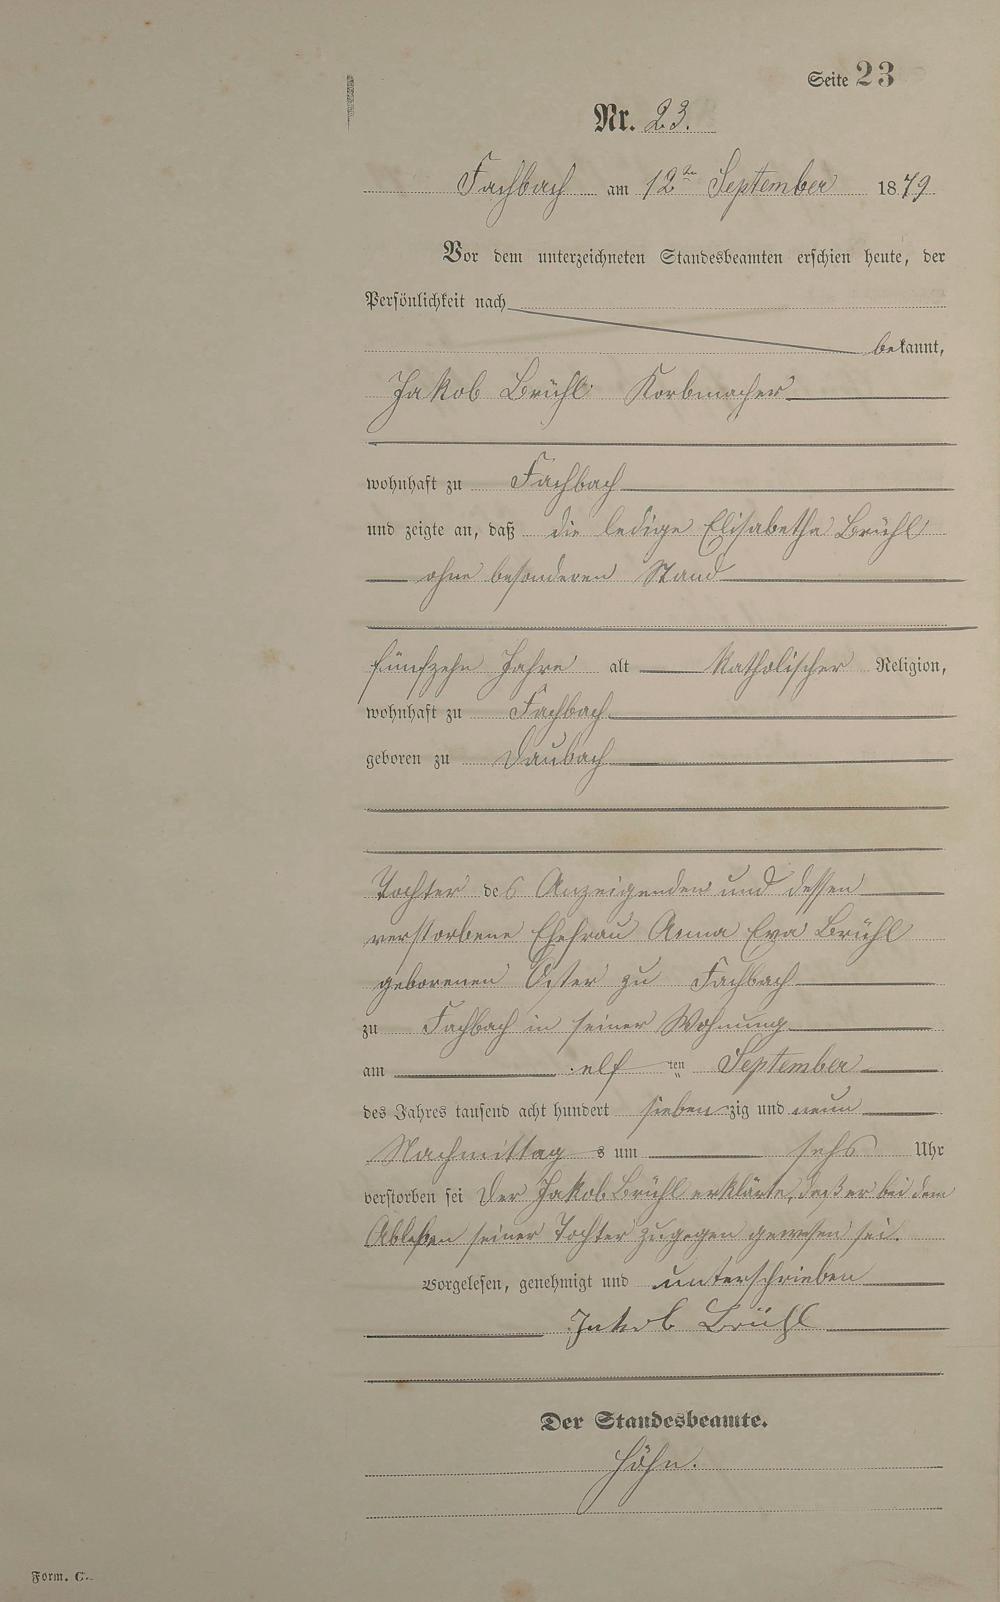 Seite 23
Nr. 23.
Fachbach am 12ten September 1879
Vor dem unterzeichneten Standesbeamten erschien heute, der
Persönlichkeit nach
bekannt,
Jakob Brühl Korbmacher
wohnhaft zu Fachbach
und zeigte an, daß die ledige Elisabetha Brühl
ohne besonderen Stand
fünfzehn Jahre alt katholischer Religion,
wohnhaft zu Fachbach
geboren zu Daubach
Tochter des Anzeigenden und dessen
verstorbene Ehefrau Anna Eva Brühl
geborenen Oster zu Fachbach
zu Fachbach in seiner Wohnung
am elf ten September
des Jahres tausend acht hundert siebenzig und neun
Nachmittag s um sechs Uhr
verstorben sei Der Jakob Brühl erklärte, daß er bei dem
Ableben seiner Tochter zugegen gewesen sei.
Vorgelesen, genehmigt und unterschrieben
Jakob Brühl
Der Standesbeamte.
Höhn.
Form. C.